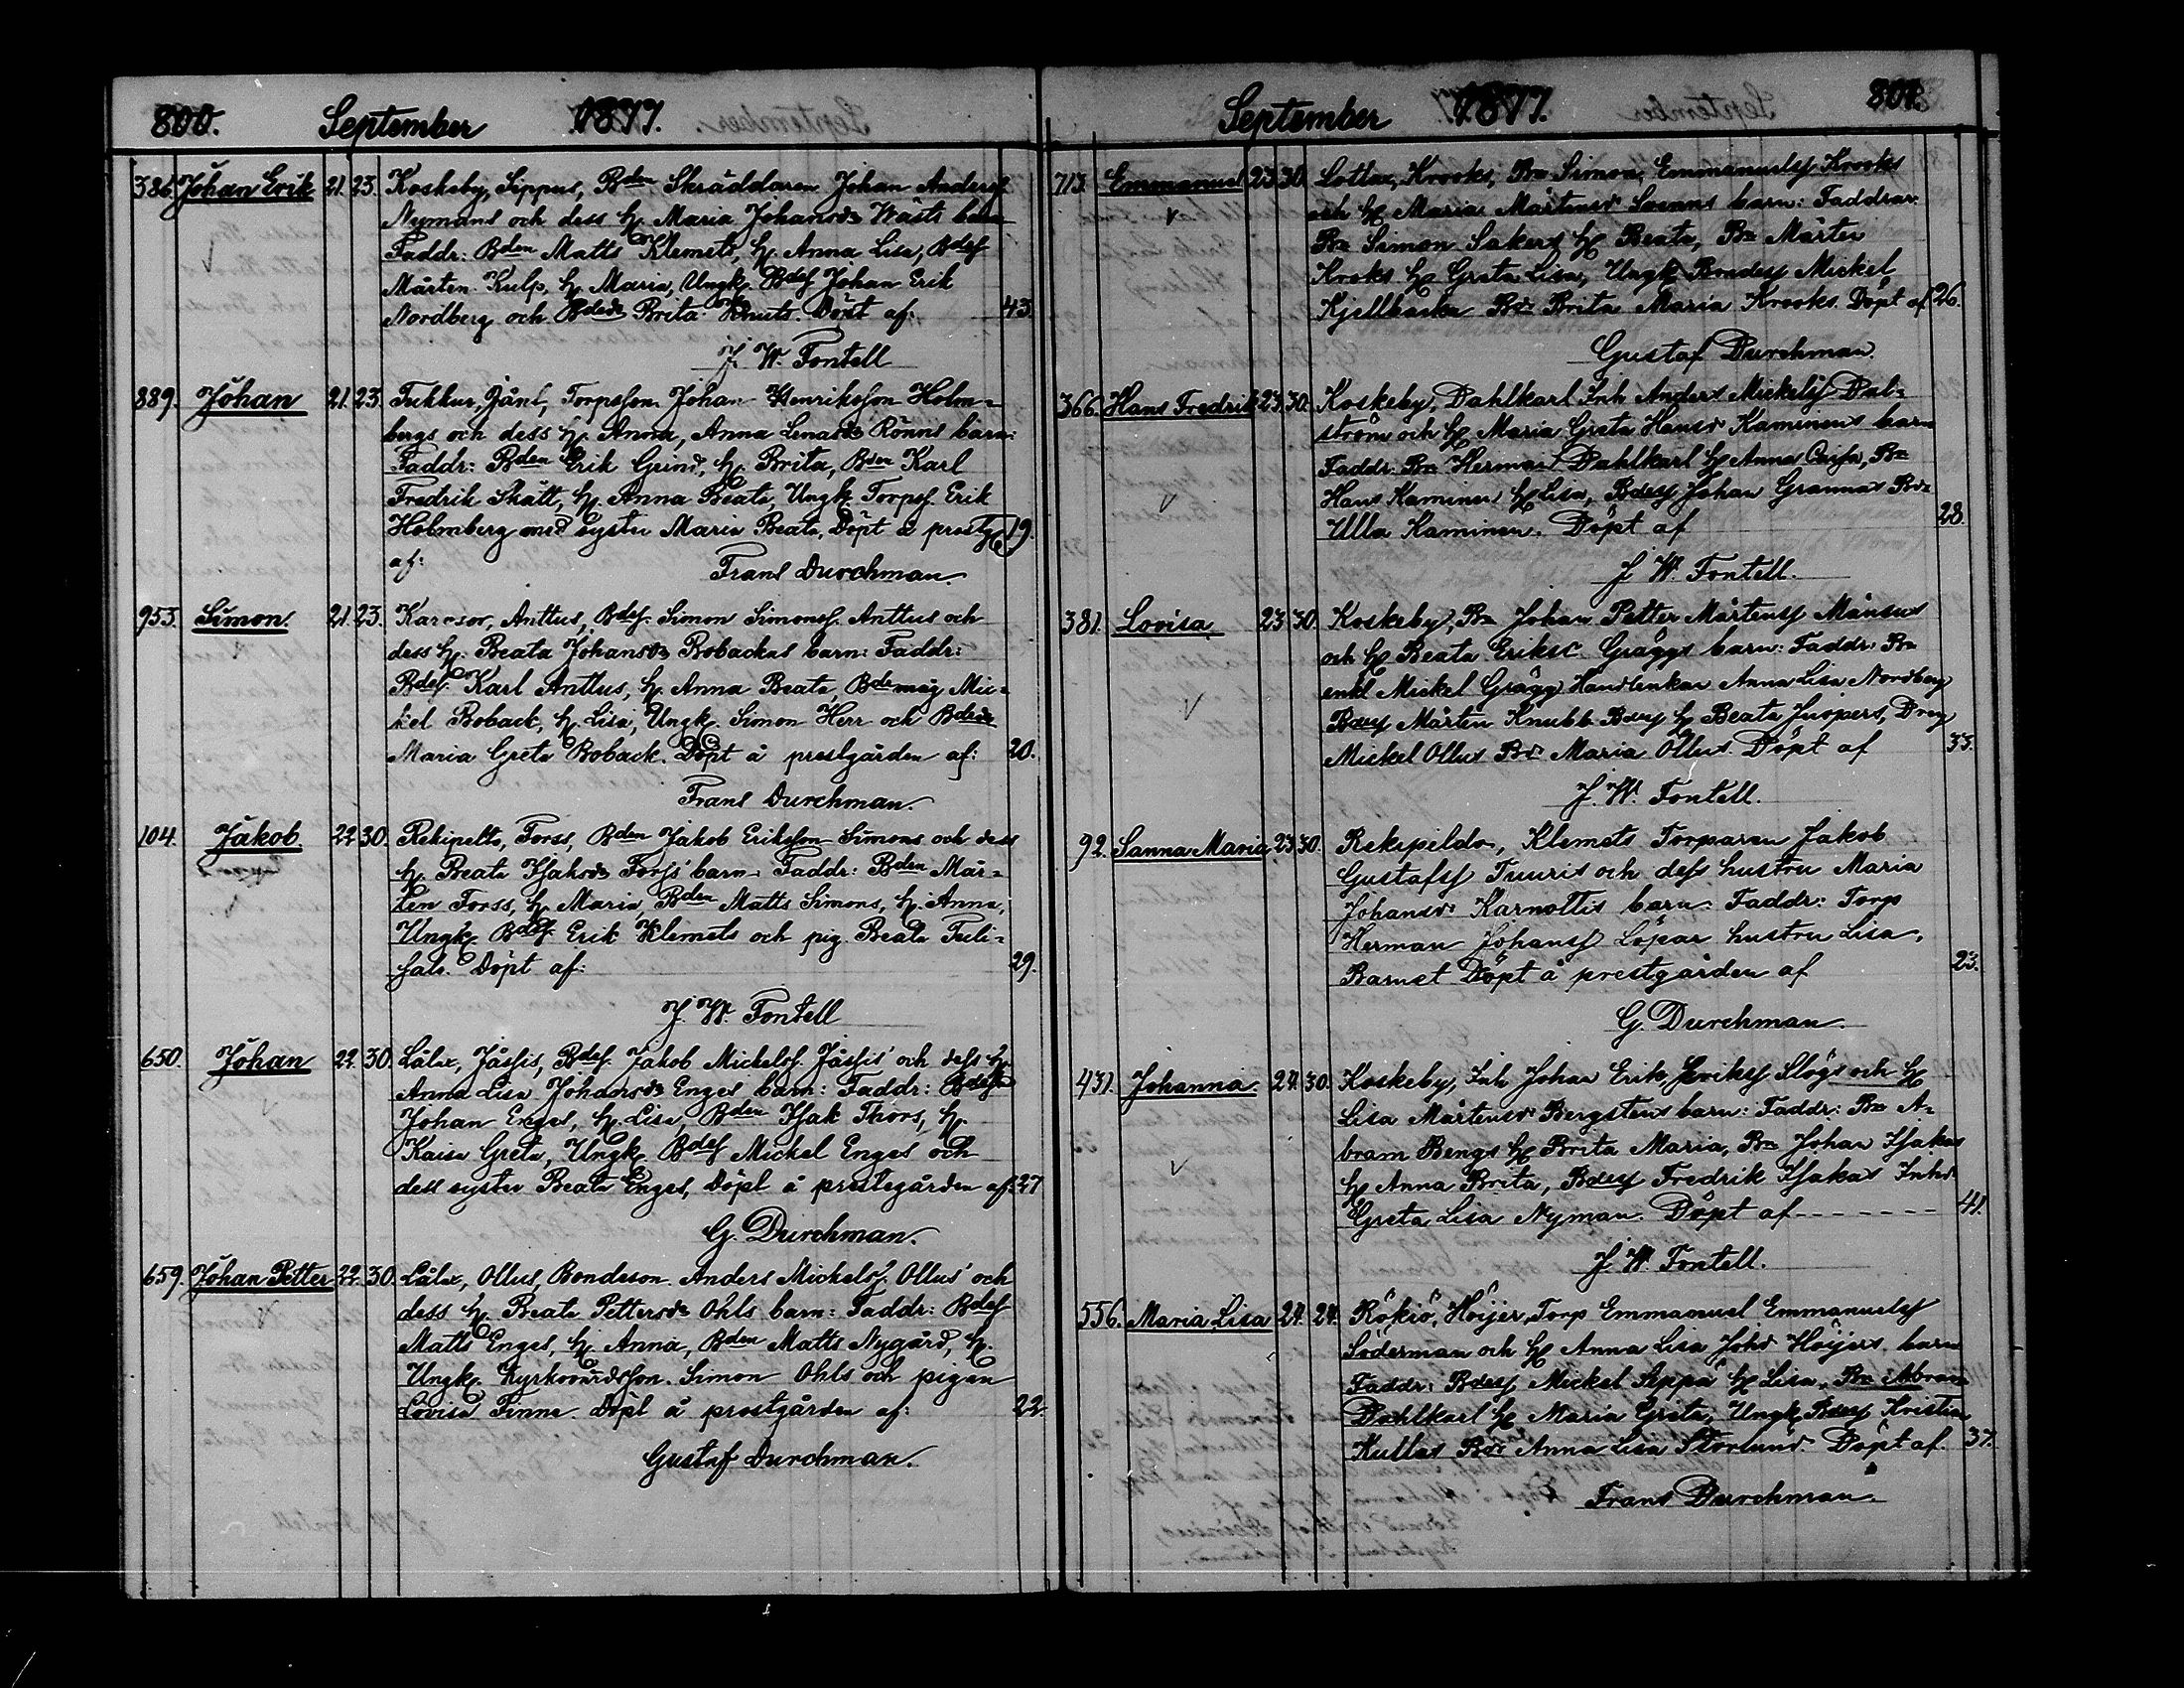 800. September 1877.
386. Johan Erik 21. 23. Koskeby, Sippus, Bden Skräddaren Johan Andersf
Nymans och dess H. Maria Johansdr Wästs barn
Faddr: Bden Matts Klemets, H. Anna Lisa, Bdef
Mårten Kulp, H. Maria, Ungk. Bdef Johan Erik
Nordberg och Bdedr Brita Knuts. Döpt af: 43.
J. W. Fontell
889. Johan 21. 23. Tukkur, Jåns, Torpsson Johan Henriksson Holm-
bergs och dess H. Anna, Anna Lenasdr Rönns barn:
Faddr: Bden Erik Grind, H. Brita, Bden Karl
Fredrik Skatt, H. Anna Beata, Ungk. Torpsf. Erik
Holmberg med syster Maria Beata, Döpt å prestg 19.
af: Frans Durchman.
953. Simon. 21. 23. Karesor, Anttus, Bdef. Simon Simonsf. Anttus och
dess H. Beata Johansdr Robackas barn: Faddr:
Bdef. Karl Anttus, H. Anna Beata, Bdemåg Mic-
kel Roback, H. Lisa, Ungk. Simon Herr och Bdedr
Maria Greta Roback. Döpt å prestgården af: 20.
Frans Durchman.
104. Jakob. 22. 30. Rekipelto, Forss, Bden Jakob Eriksson Simons och dess
H. Beata Isaksdr Forss' barn. Faddr: Bden Mår-
ten Forss, H. Maria, Bden Matts Simons, H. Anna,
Ungk. Bdef. Erik Klemets och pig. Beata Tuli-
salo. Döpt af: 29.
J. W. Fontell
650. Johan 22. 30. Lålax, Jåssis, Bdef. Jakob Mickelsf. Jåssis' och dess H.
Anna Lisa Johansdr Enges barn: Faddr: Bdef
Johan Enges, H. Lisa, Bden Isak Thors, H.
Kaisa Greta, Ungk. Bdef Mickel Enges och
dess syster Beata Enges, Döpt å prestegården af: 27
G. Durchman.
659. Johan Petter 22. 30. Lålax, Ollus, Bondeson Anders Mickelsf. Ollus' och
dess H. Beata Pettersdr Ohls barn: Faddr: Bdef
Matts Enges, H. Anna, Bden Matts Nygård, H.
Ungk. Kyrkovärdsson. Simon Ohls och pigan
Lovisa Finne. Döpt å prestgården af: 22.
Gustaf Durchman.
September 1877. 801.
713. Emmanuel 23. 30. Lottax, Krooks, Bn Simon Emmanuelsf Krooks
och H. Maria Mårtensdr Svenns barn: Faddrar.
Bn Simon Sakers H. Beata, Bn Mårten
Kroks H. Greta Lisa, Ungk Bondesf Mickel
Kjellbacka Bdr Brita Maria Krooks. Döpt af 26.
Gustaf Durchman.
366. Hans Fredrik 23. 30. Koskeby, Dahlkarl Inh Anders Mickelsf Dal-
ström och H. Maria Greta Hansdr Kaminens barn
Faddr. Bn Herman Dahlkarl H. Anna Caisa, Bn
Hans Kaminen H. Lisa, Bdesf Johan Grannas Bdr
Ulla Kaminen. Döpt af 28.
J. W. Fontell.
381. Lovisa 23 30. Koskeby, Bn Johan Petter Mårtensf Månsus
och H. Beata Eriksdr Gräggs barn: Faddr: Bn
enkl Mickel Grägg Handlenkan Anna Lisa Nordberg
Bdesf Mårten Knubb Bdesf H. Beata Juopers, Dreng
Mickel Ollus Bdr Maria Ollus. Döpt af 33.
J. W. Fontell.
92. Sanna Maria 23. 30. Rekipeldo, Klemets Torparen Jakob
Gustafsf Tuuris och dess hustru Maria
Johansdr Karnottis barn: Faddr: Torp
Herman Johansf Löpar hustru Lisa.
Barnet Döpt å prestgården af 23.
G. Durchman.
431. Johanna 24. 30. Koskeby, Inh Johan Erik Eriksf Slögs och H.
Lisa Mårtensdr Bergstens barn: Faddr: Bn A-
bram Bengs H. Brita Maria, Bn Johan Isakas
H. Anna Brita, Bdesf Fredrik Isakas Inhdr
Greta Lisa Nyman. Döpt af 41.
J. W. Fontell.
556. Maria Lisa 24. 24. Rökiö, Höijer, Torp Emmanuel Emmanuelsf
Söderman och H. Anna Lisa Johdr Höijers barn
Faddr: Bdesf Mickel Seppä H. Lisa, Bn Abram
Dahlkarl H. Maria Greta, Ungk. Bdesf Kristian
Kullas Bdr Anna Lisa Storlund Döpt af. 37.
Frans Durchman.